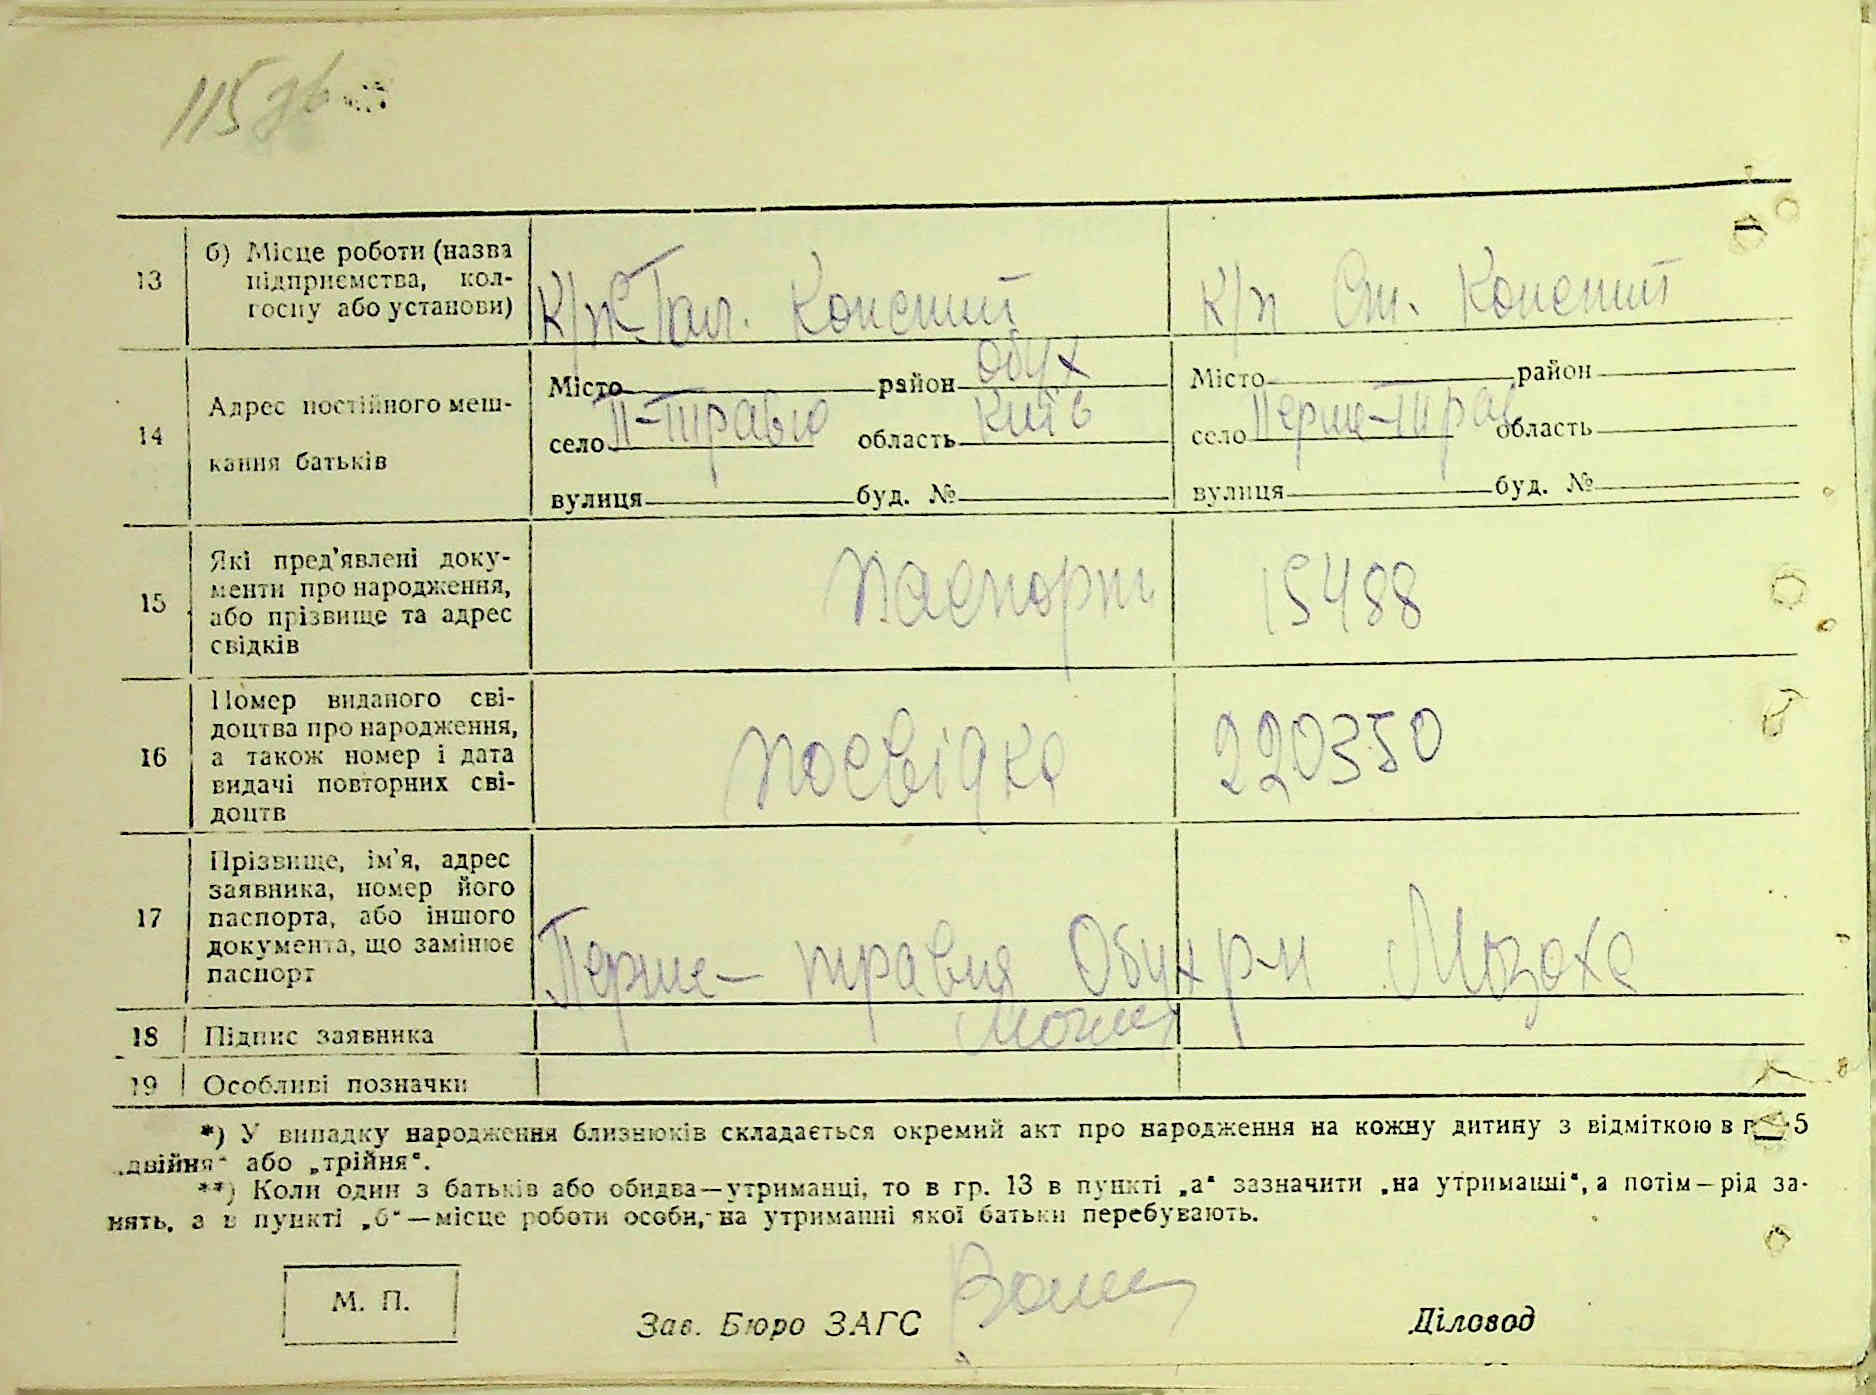 115 зв
13
б) Місце роботи (назва
підприємства, кол-
госпу або установи)
к/п Ст. Конспит
14
Адрес постійного меш-
кання батьків
Місто район Обух
село П-Травня область Київ
вулиця буд. №
Місто район
село Перше-Трав область
вулиця буд. №
15
Які пред'явлені доку-
менти про народження,
або прізвище та адрес
свідків
паспорт 15488
16
Номер виданого сві-
доцтва про народження,
а також номер і дата
видачі повторних сві-
доцтв
посвідка 220350
17
Прізвище, ім'я, адрес
заявника, номер його
паспорта, або іншого
документа, що замінює
паспорт
Перше-травня Обух р-н
18 Підпис заявника
19 Особливі позначки
*) У випадку народження близнюків складається окремий акт про народження на кожну дитину з відміткою в г 5
„двійня“ або „трійня“.
**) Коли один з батьків або обидва—утриманці, то в гр. 13 в пункті „а“ зазначити „на утриманні“, а потім—рід за-
нять, а в пункті „б“—місце роботи особи, на утриманні якої батьки перебувають.
М. П.
Зав. Бюро ЗАГС
Діловод